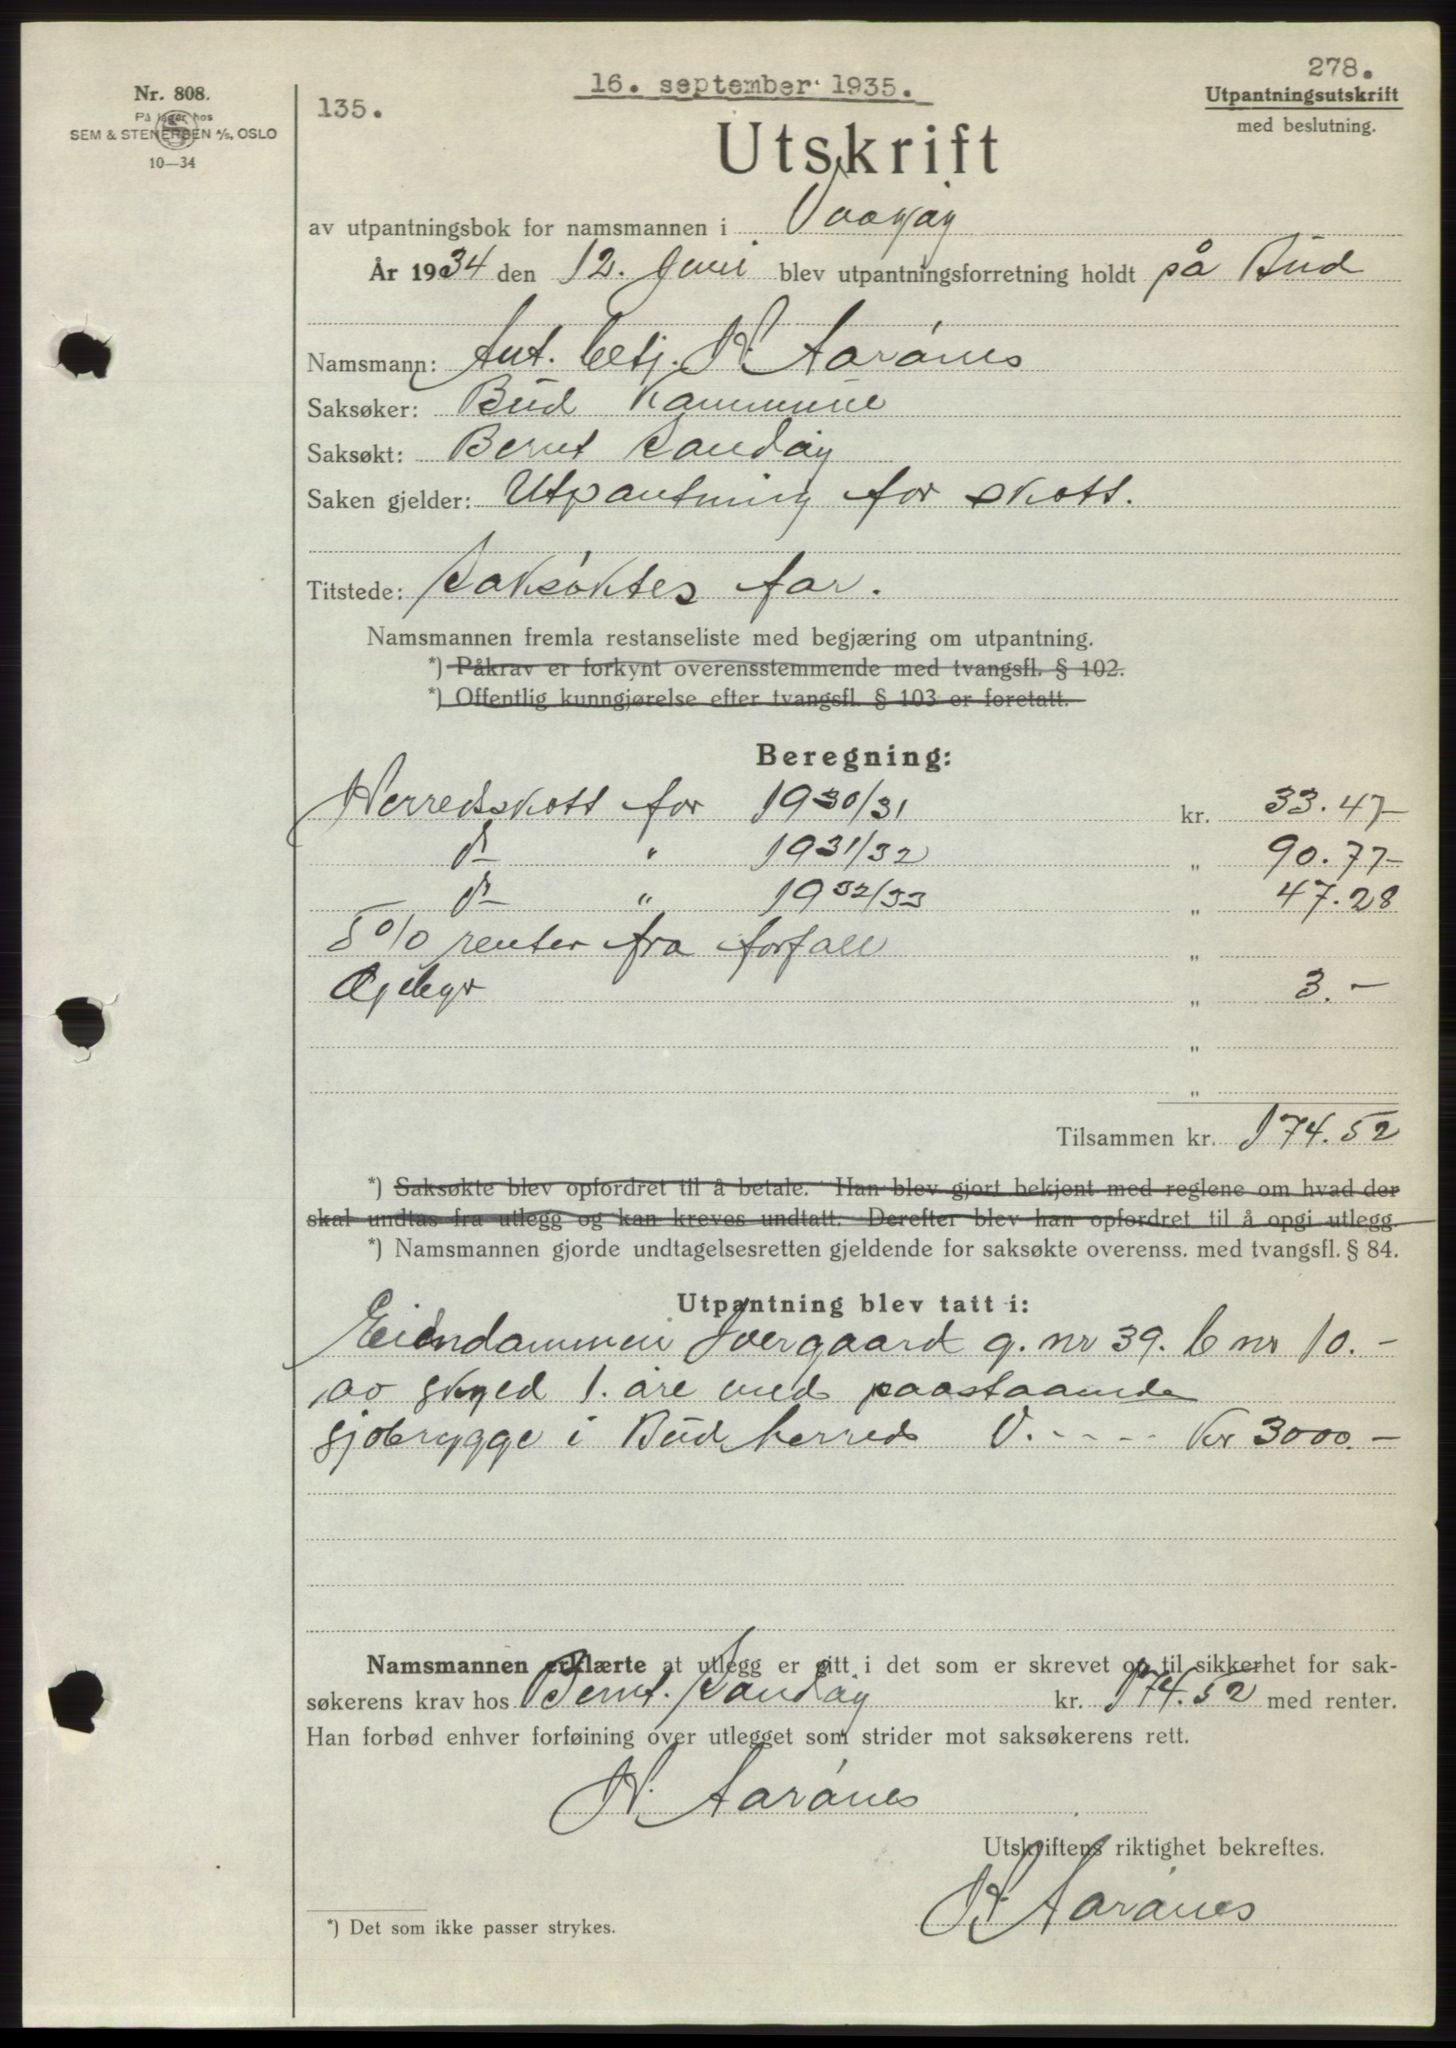 278.
16. september 1935.
Nr. 808.
På lager hos
SEM & STENERSEN A/S, OSLO
10—34
135.
Utpantningsutskrift
med beslutning.
Utskrift
av utpantningsbok for namsmannen i Vaagøy
År 1934 den 12. Juni blev utpantningsforretning holdt på Bud
Namsmann: Ant. betj. N. Aarønes
Saksøker: Bud Kommune
Saksøkt: Bernt Sandøy
Saken gjelder: Utpantning for skatt.
Tilstede: Saksøktes far.
Namsmannen fremla restanseliste med begjæring om utpantning.
*) Påkrav er forkynt overensstemmende med tvangsfl. § 102.
*) Offentlig kunngjørelse efter tvangsfl. § 103 er foretatt.
Beregning:
Herredsskatt for 1930/31 kr. 33.47-
do " 1931/32 " 90.77-
do " 1932/33 " 47.28
5% renter fra forfall "
gebyr " 3.-
"
"
Tilsammen kr. 174.52
*) Saksøkte blev opfordret til å betale. Han blev gjort bekjent med reglene om hvad der
skal undtas fra utlegg og kan kreves undtatt. Derefter blev han opfordret til å opgi utlegg.
*) Namsmannen gjorde undtagelsesretten gjeldende for saksøkte overenss. med tvangsfl. § 84.
Utpantning blev tatt i:
Eiendammen Ivergaard g. nr 39. b nr 10.-
av skyld 1. øre med paastaaende
sjøbrygge i Bud herred V. - - - - Kr 3000.-
Namsmannen erklærte at utlegg er gitt i det som er skrevet op til sikkerhet for sak-
søkerens krav hos Bernt. Sandøy kr. 174.52 med renter.
Han forbød enhver forføining over utlegget som strider mot saksøkerens rett.
N. Aarønes
Utskriftens riktighet bekreftes.
N. Aarønes
*) Det som ikke passer strykes.